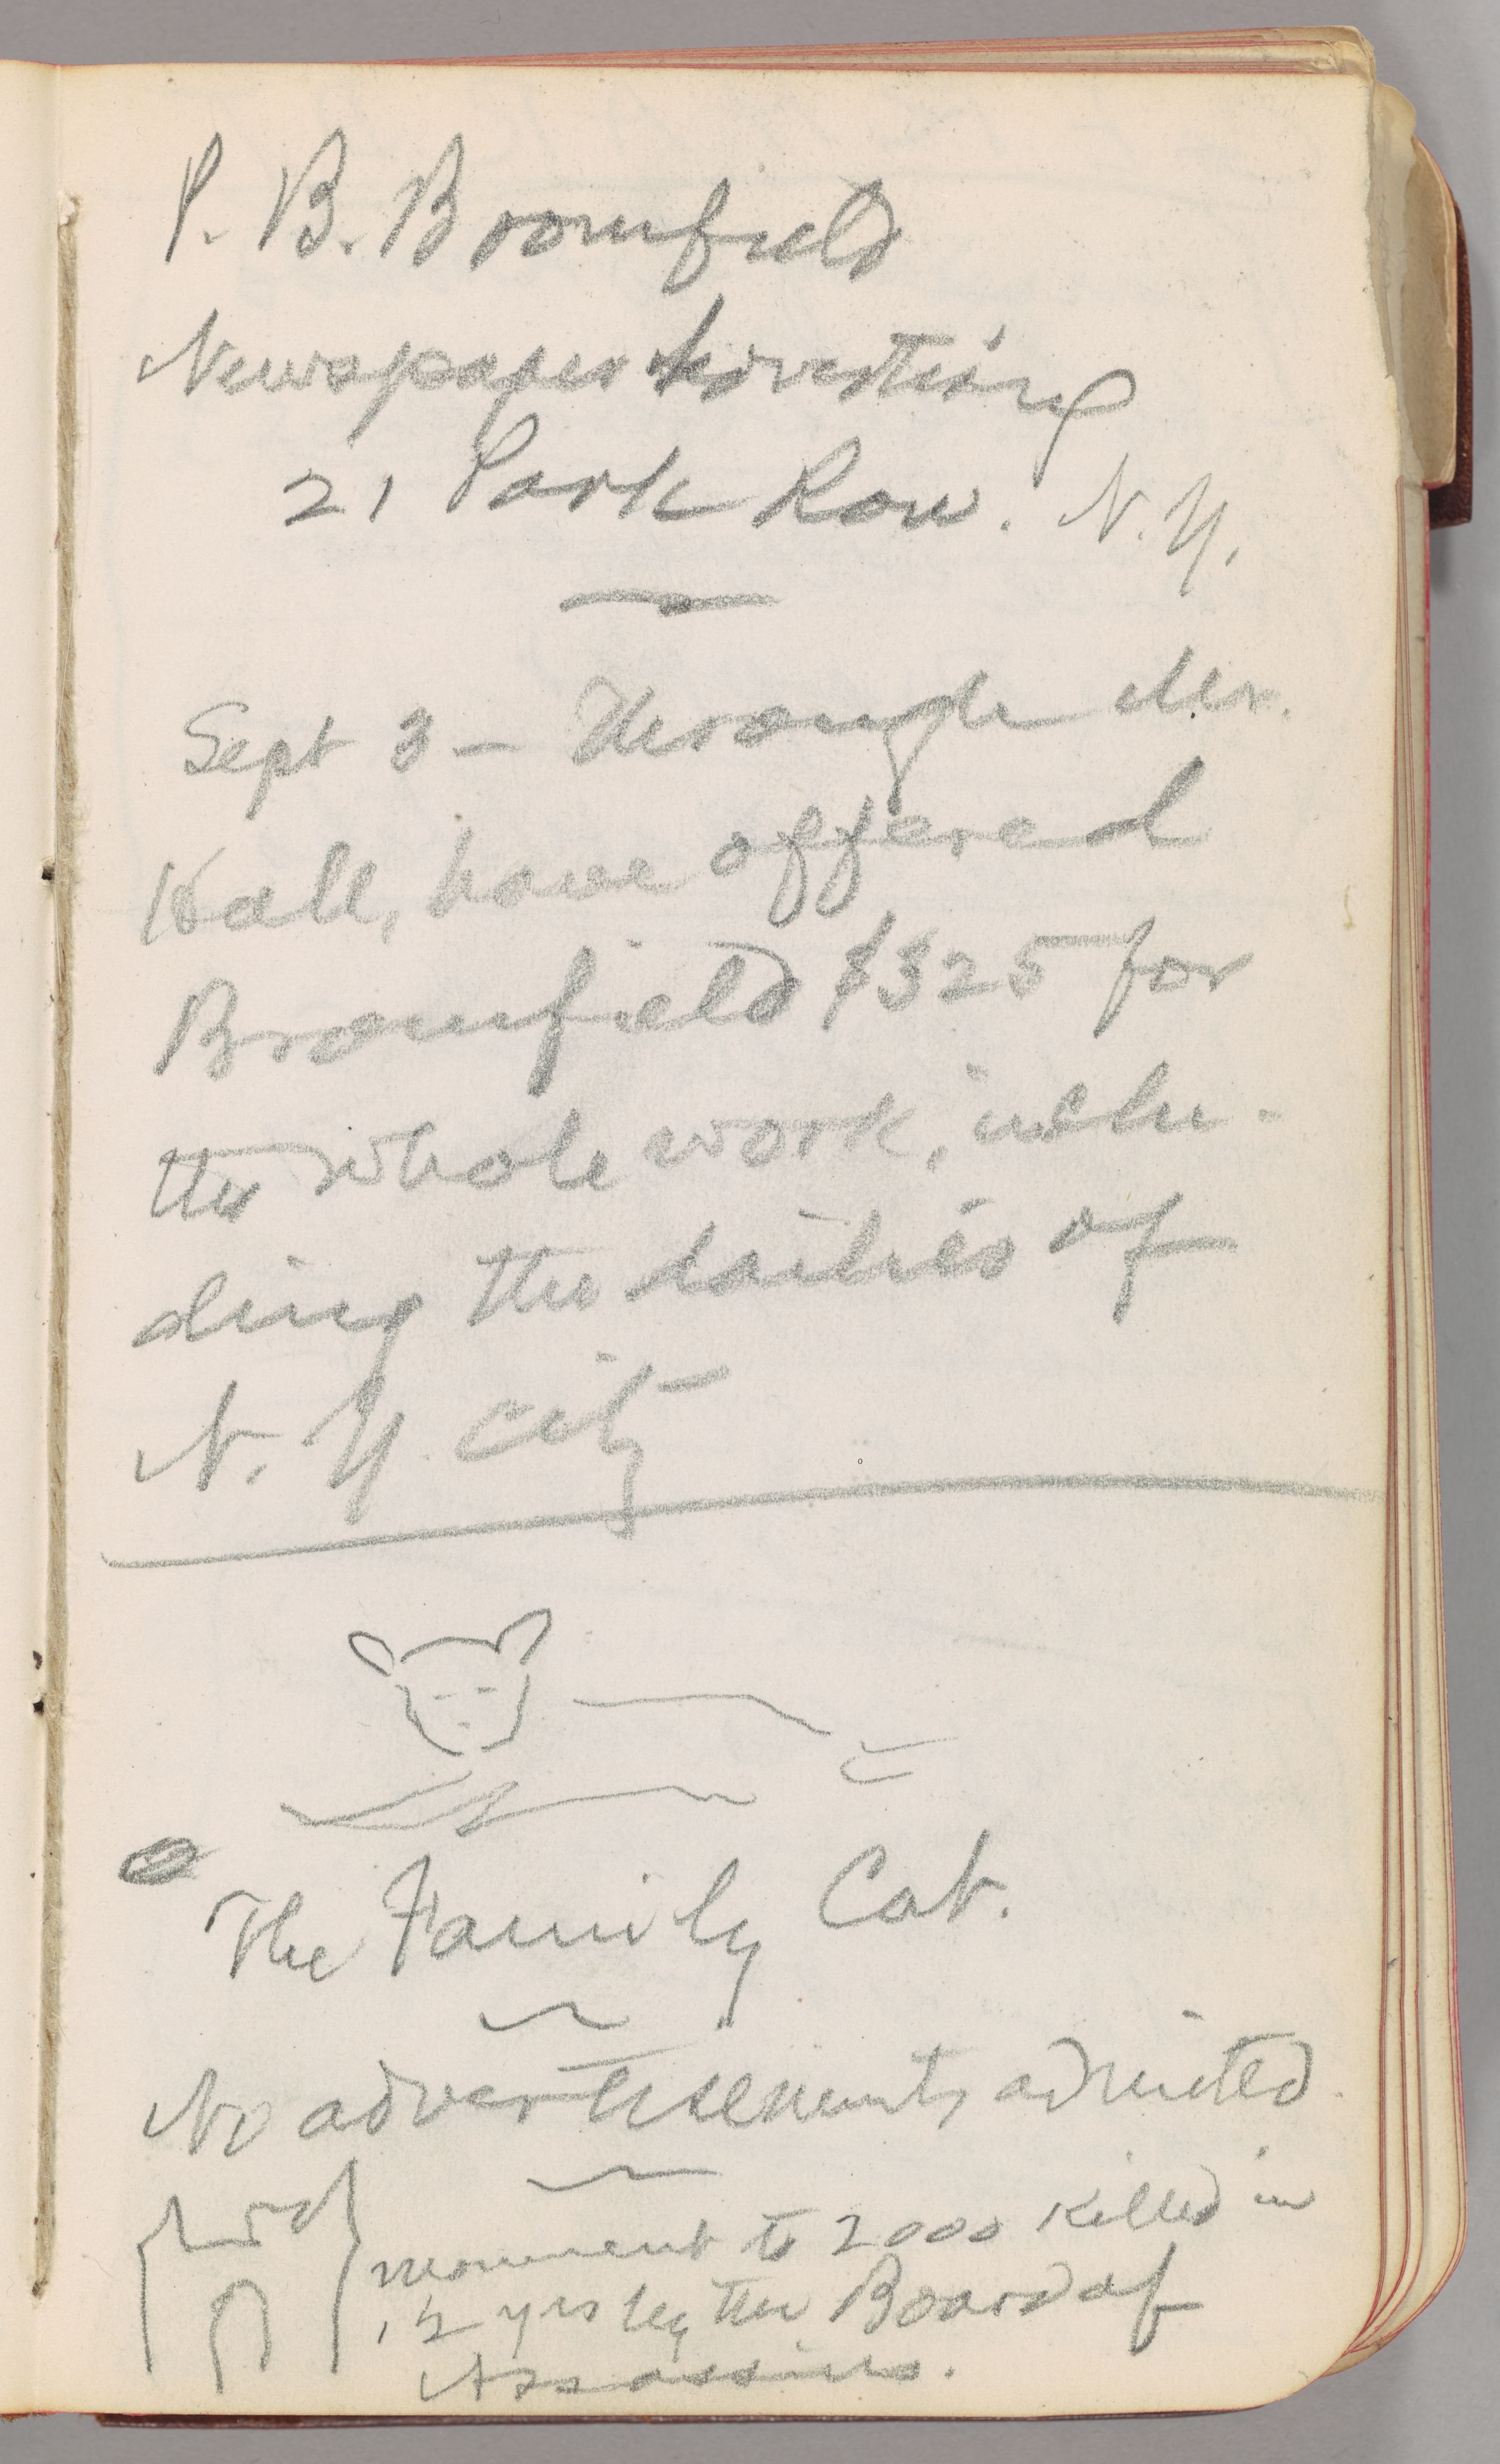 P. B. Bromfield
Newspaper Advertising
21 Park Row. N. Y.
Sept 3 – Through Mr.
Hall, have offered
Bromfield $325 for
the whole work, inclu-
ding the dailies of
N. Y. city
The Family Cat.
No advertisements admitted.
monument to 2000 killed in
12 yrs by the Board of
Assassins.